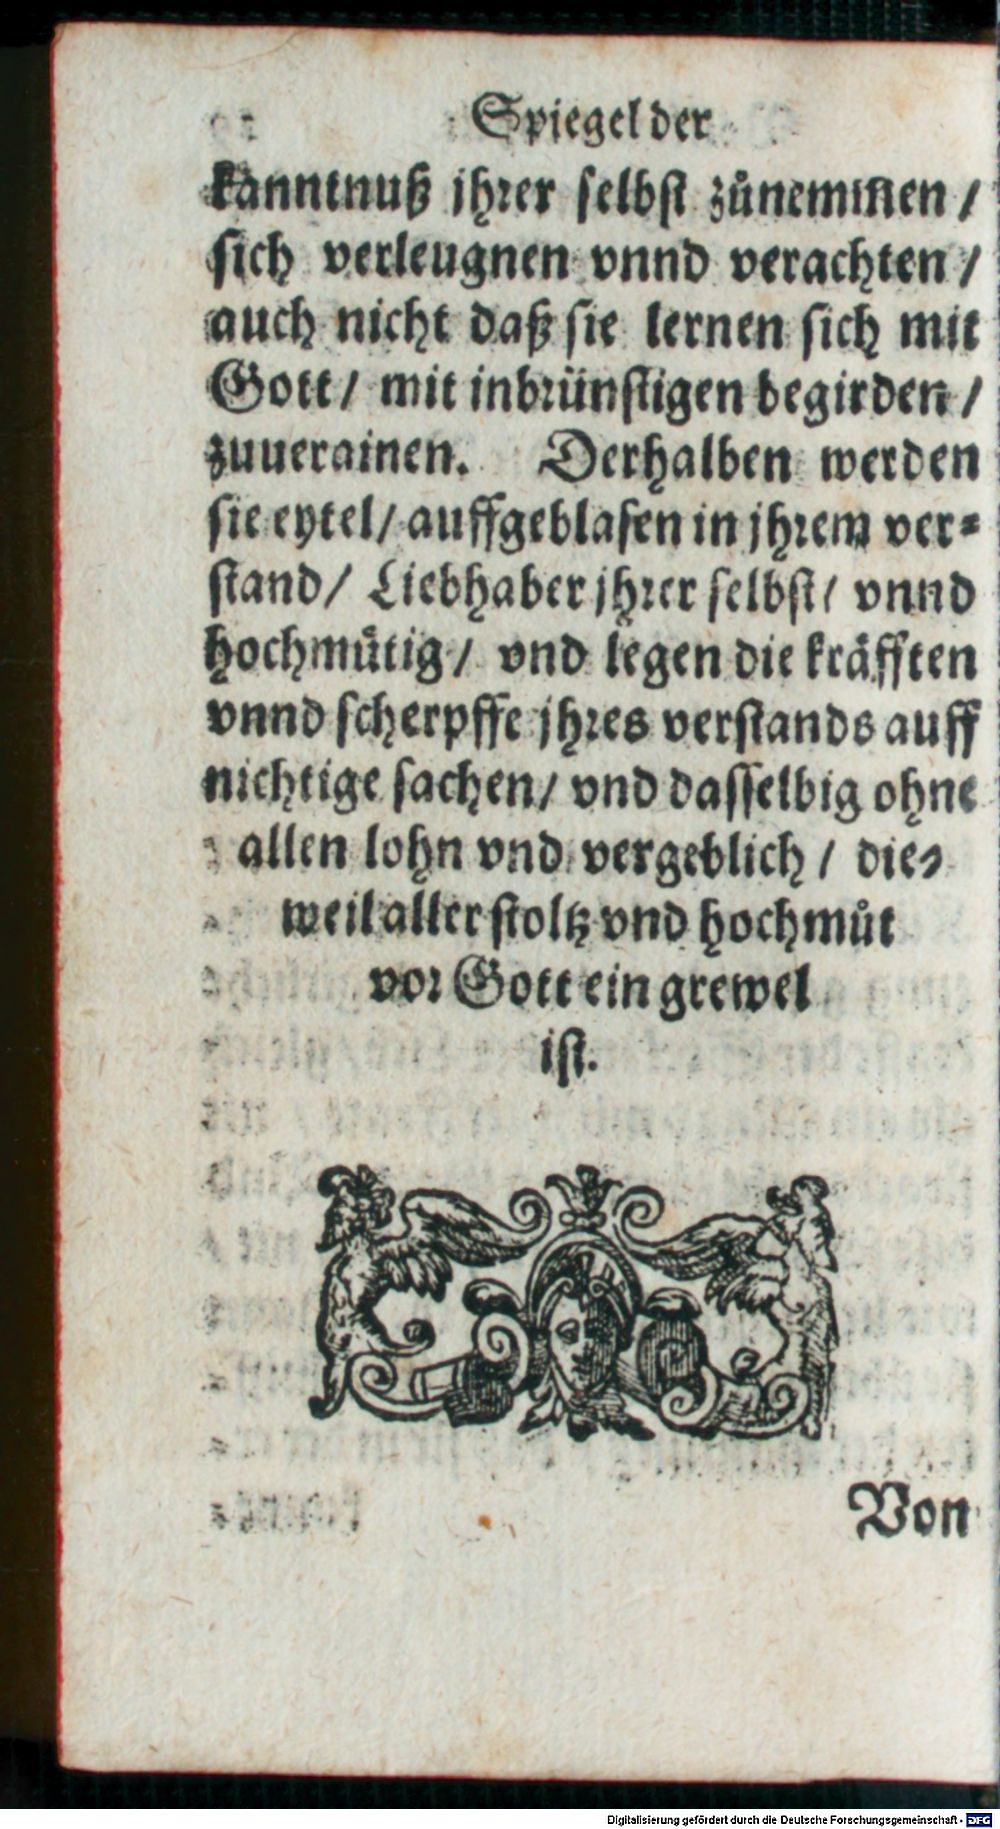 Spiegel der
kanntnuß jhrer selbst zůnemmen /
sich verleugnen vnnd verachten /
auch nicht daß sie lernen sich mit
Gott / mit inbrünstigen begirden /
zuuerainen. Derhalben werden
sie eytel / auffgeblasen in jhrem ver⸗
stand / Liebhaber jhrer selbst / vnnd
hochmütig / vnd legen die kräfften
vnnd scherpffe jhres verstands auff
nichtige sachen / vnd dasselbig ohne
allen lohn vnd vergeblich / die⸗
weil aller stoltz vnd hochmůt
vor Gott ein grewel
ist.
Von
Digitalisierung gefördert durch die Deutsche Forschungsgemeinschaft - DFG